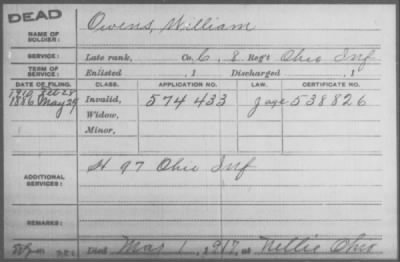 DEAD
NAME OF SOLDIER: Owens, William
SERVICE: Late rank, Co. C, 8 Reg't Ohio Inf
TERM OF SERVICE: Enlisted , 1 Discharged , 1
DATE OF FILING. CLASS. APPLICATION NO. LAW. CERTIFICATE NO.
1910 Feb 28
1886 May 29 Invalid, 574 433 J age 538826
Widow,
1 Minor,
ADDITIONAL SERVICES: H 97 Ohio Inf
REMARKS:
Died Mar 1, 1917, at Nellie Ohio